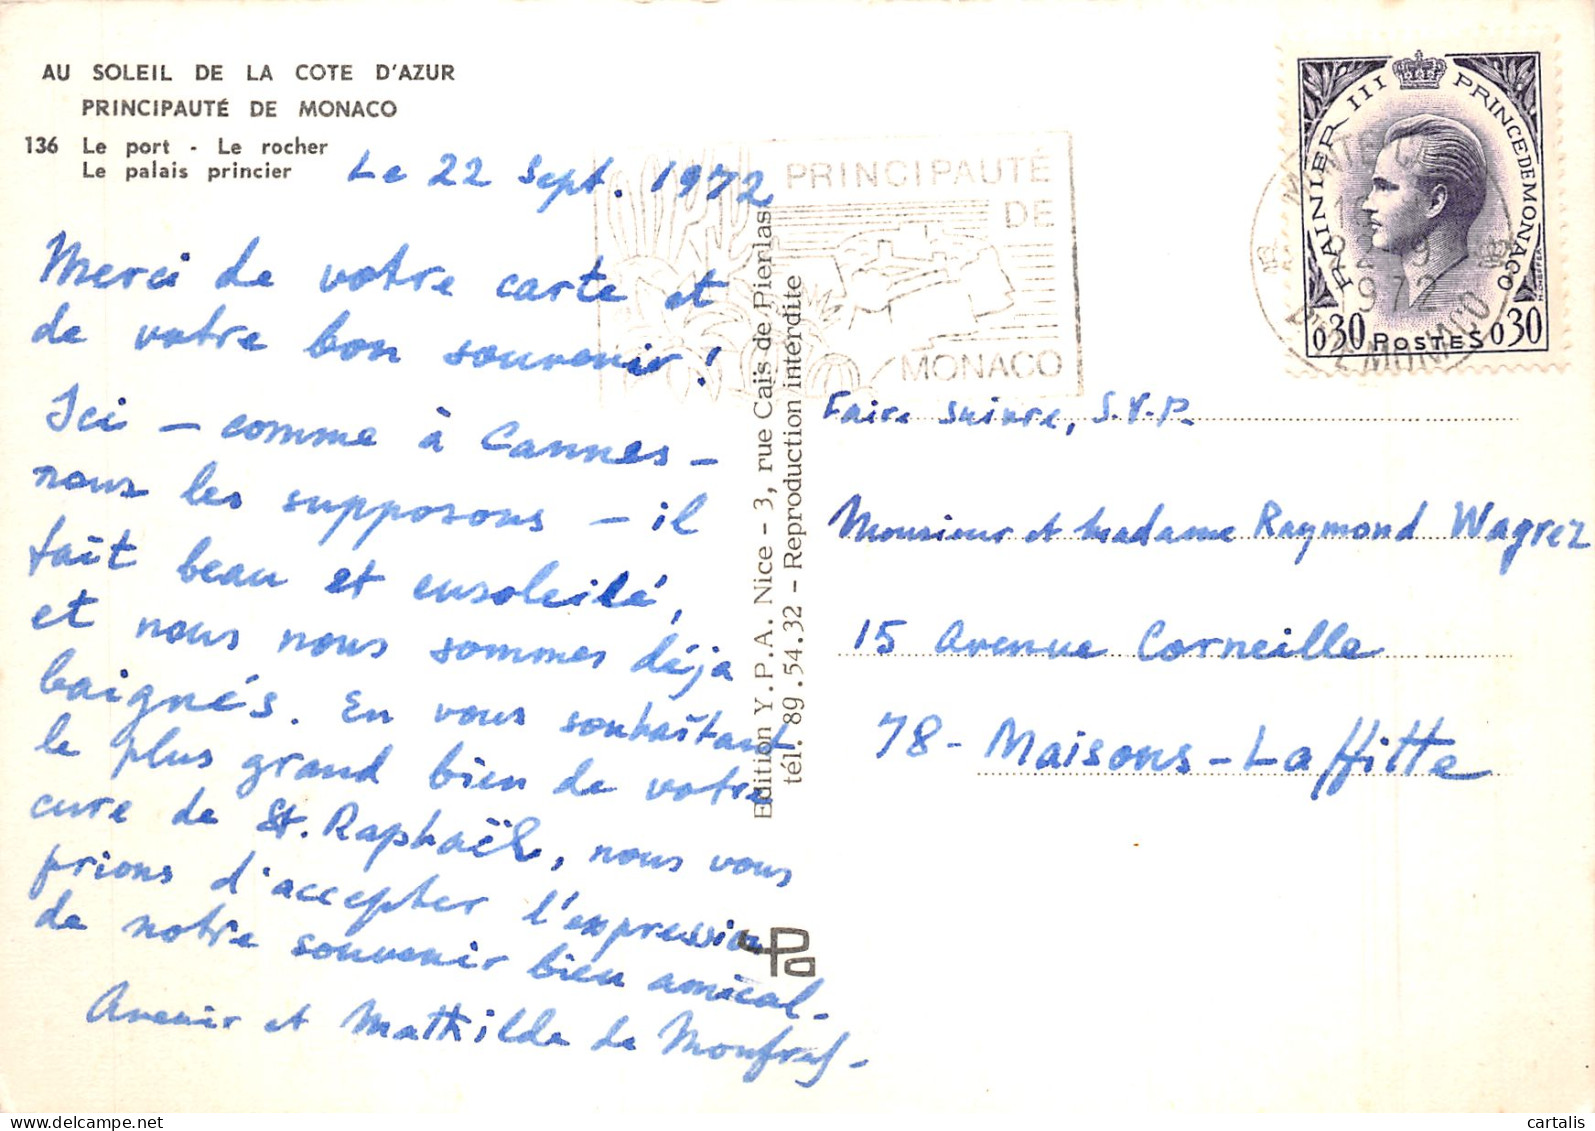 AU SOLEIL DE LA COTE D'AZUR
PRINCIPAUTÉ DE MONACO
136 Le port - Le rocher
Le palais princier
Le 22 Sept. 1972
Merci de votre carte et
de votre bon souvenir !
Ici - comme à Cannes -
nous les supposons - il
fait beau et ensoleillé,
et nous nous sommes déja
baignés. En vous souhaîtant
le plus grand bien de votre
cure de St. Raphaël, nous vous
prions d'accepter l'expression
de notre souvenir bien amical.
Avenir et Mathilde de Monfred -
Edition Y.P.A. Nice - 3, rue Caïs de Pierlas
tél. 89.54.32 - Reproduction interdite
YPa
PRINCIPAUTÉ
DE
MONACO
RAINIER III PRINCE DE MONACO
0,30 POSTES 0,30
1972
MONACO
Faire suivre, S.V.P.
Monsieur et Madame Raymond Wagrez
15 Avenue Corneille
78 - Maisons-Laffitte
cartalis